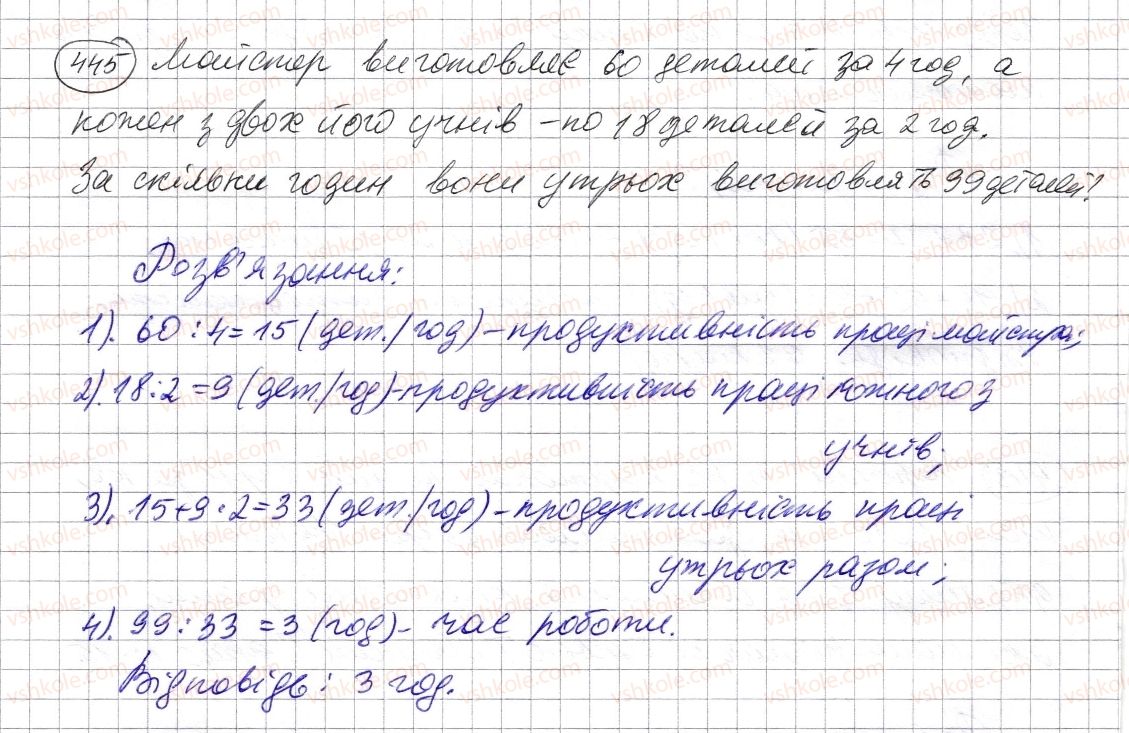 445 Майстер виготовляє 60 деталей за 4 год, а
кожен з двох його учнів – по 18 деталей за 2 год.
За скільки годин вони утрьох виготовлять 99 деталей?
Розв'язання:
1). 60 : 4 = 15 (дет./год) – продуктивність праці майстра;
2). 18 : 2 = 9 (дет./год) – продуктивність праці кожного з
учнів;
3). 15 + 9 · 2 = 33 (дет./год) – продуктивність праці
утрьох разом;
4). 99 : 33 = 3 (год) – час роботи.
Відповідь: 3 год.
vshkole.com